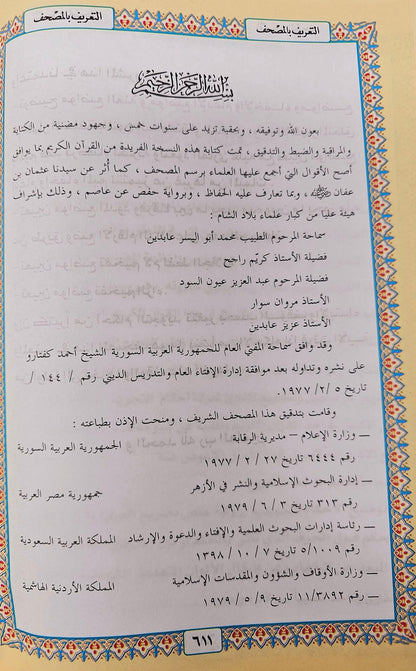 التعريف بالمصحف
التعريف بالمصحف
بسم الله الرحمن الرحيم
بعون الله وتوفيقه ، وبحقبة تزيد على سنوات خمس ، وجهود مضنية من الكتابة
والمراقبة والضبط والتدقيق ، تمت كتابة هذه النسخة الفريدة من القرآن الكريم بما يوافق
أصح الأقوال التي أجمع عليها العلماء برسم المصحف ، كما أُثر عن سيدنا عثمان بن
عفان رضي الله عنه ، وبما تعارف عليه الحفاظ ، وبرواية حفص عن عاصم ، وذلك بإشراف
هيئة عليا من كبار علماء بلاد الشام :
سماحة المرحوم الطبيب محمد أبو اليسر عابدين
فضيلة الأستاذ كريّم راجح
فضيلة المرحوم عبد العزيز عيون السود
الأستاذ مروان سوار
الأستاذ عزيز عابدين
وقد وافق سماحة المفتي العام للجمهورية العربية السورية الشيخ أحمد كفتارو
على نشره وتداوله بعد موافقة إدارة الإفتاء العام والتدريس الديني رقم / ١٤٤ /
تاريخ ٥ /٢ /١٩٧٧ .
وقامت بتدقيق هذا المصحف الشريف ، ومنحت الإذن بطباعته :
ــ وزارة الإعلام – مديرية الرقابة الجمهورية العربية السورية
رقم ٦٤٤٤ تاريخ ٢٧ / ٢ / ١٩٧٧
ــ إدارة البحوث الإسلامية والنشر في الأزهر جمهورية مصر العربية
رقم ٣١٣ تاريخ ٣ / ٦ / ١٩٧٩
ــ رئاسة إدارات البحوث العلمية والإفتاء والدعوة والإرشاد المملكة العربية السعودية
رقم ٥/١٠٠٩ تاريخ ٧ / ١٠ / ١٣٩٨
ــ وزارة الأوقاف والشؤون والمقدسات الإسلامية المملكة الأردنية الهاشمية
ــ رقم ١١/٣٨٩٢ تاريخ ٩ /٥ / ١٩٧٩
٦١١